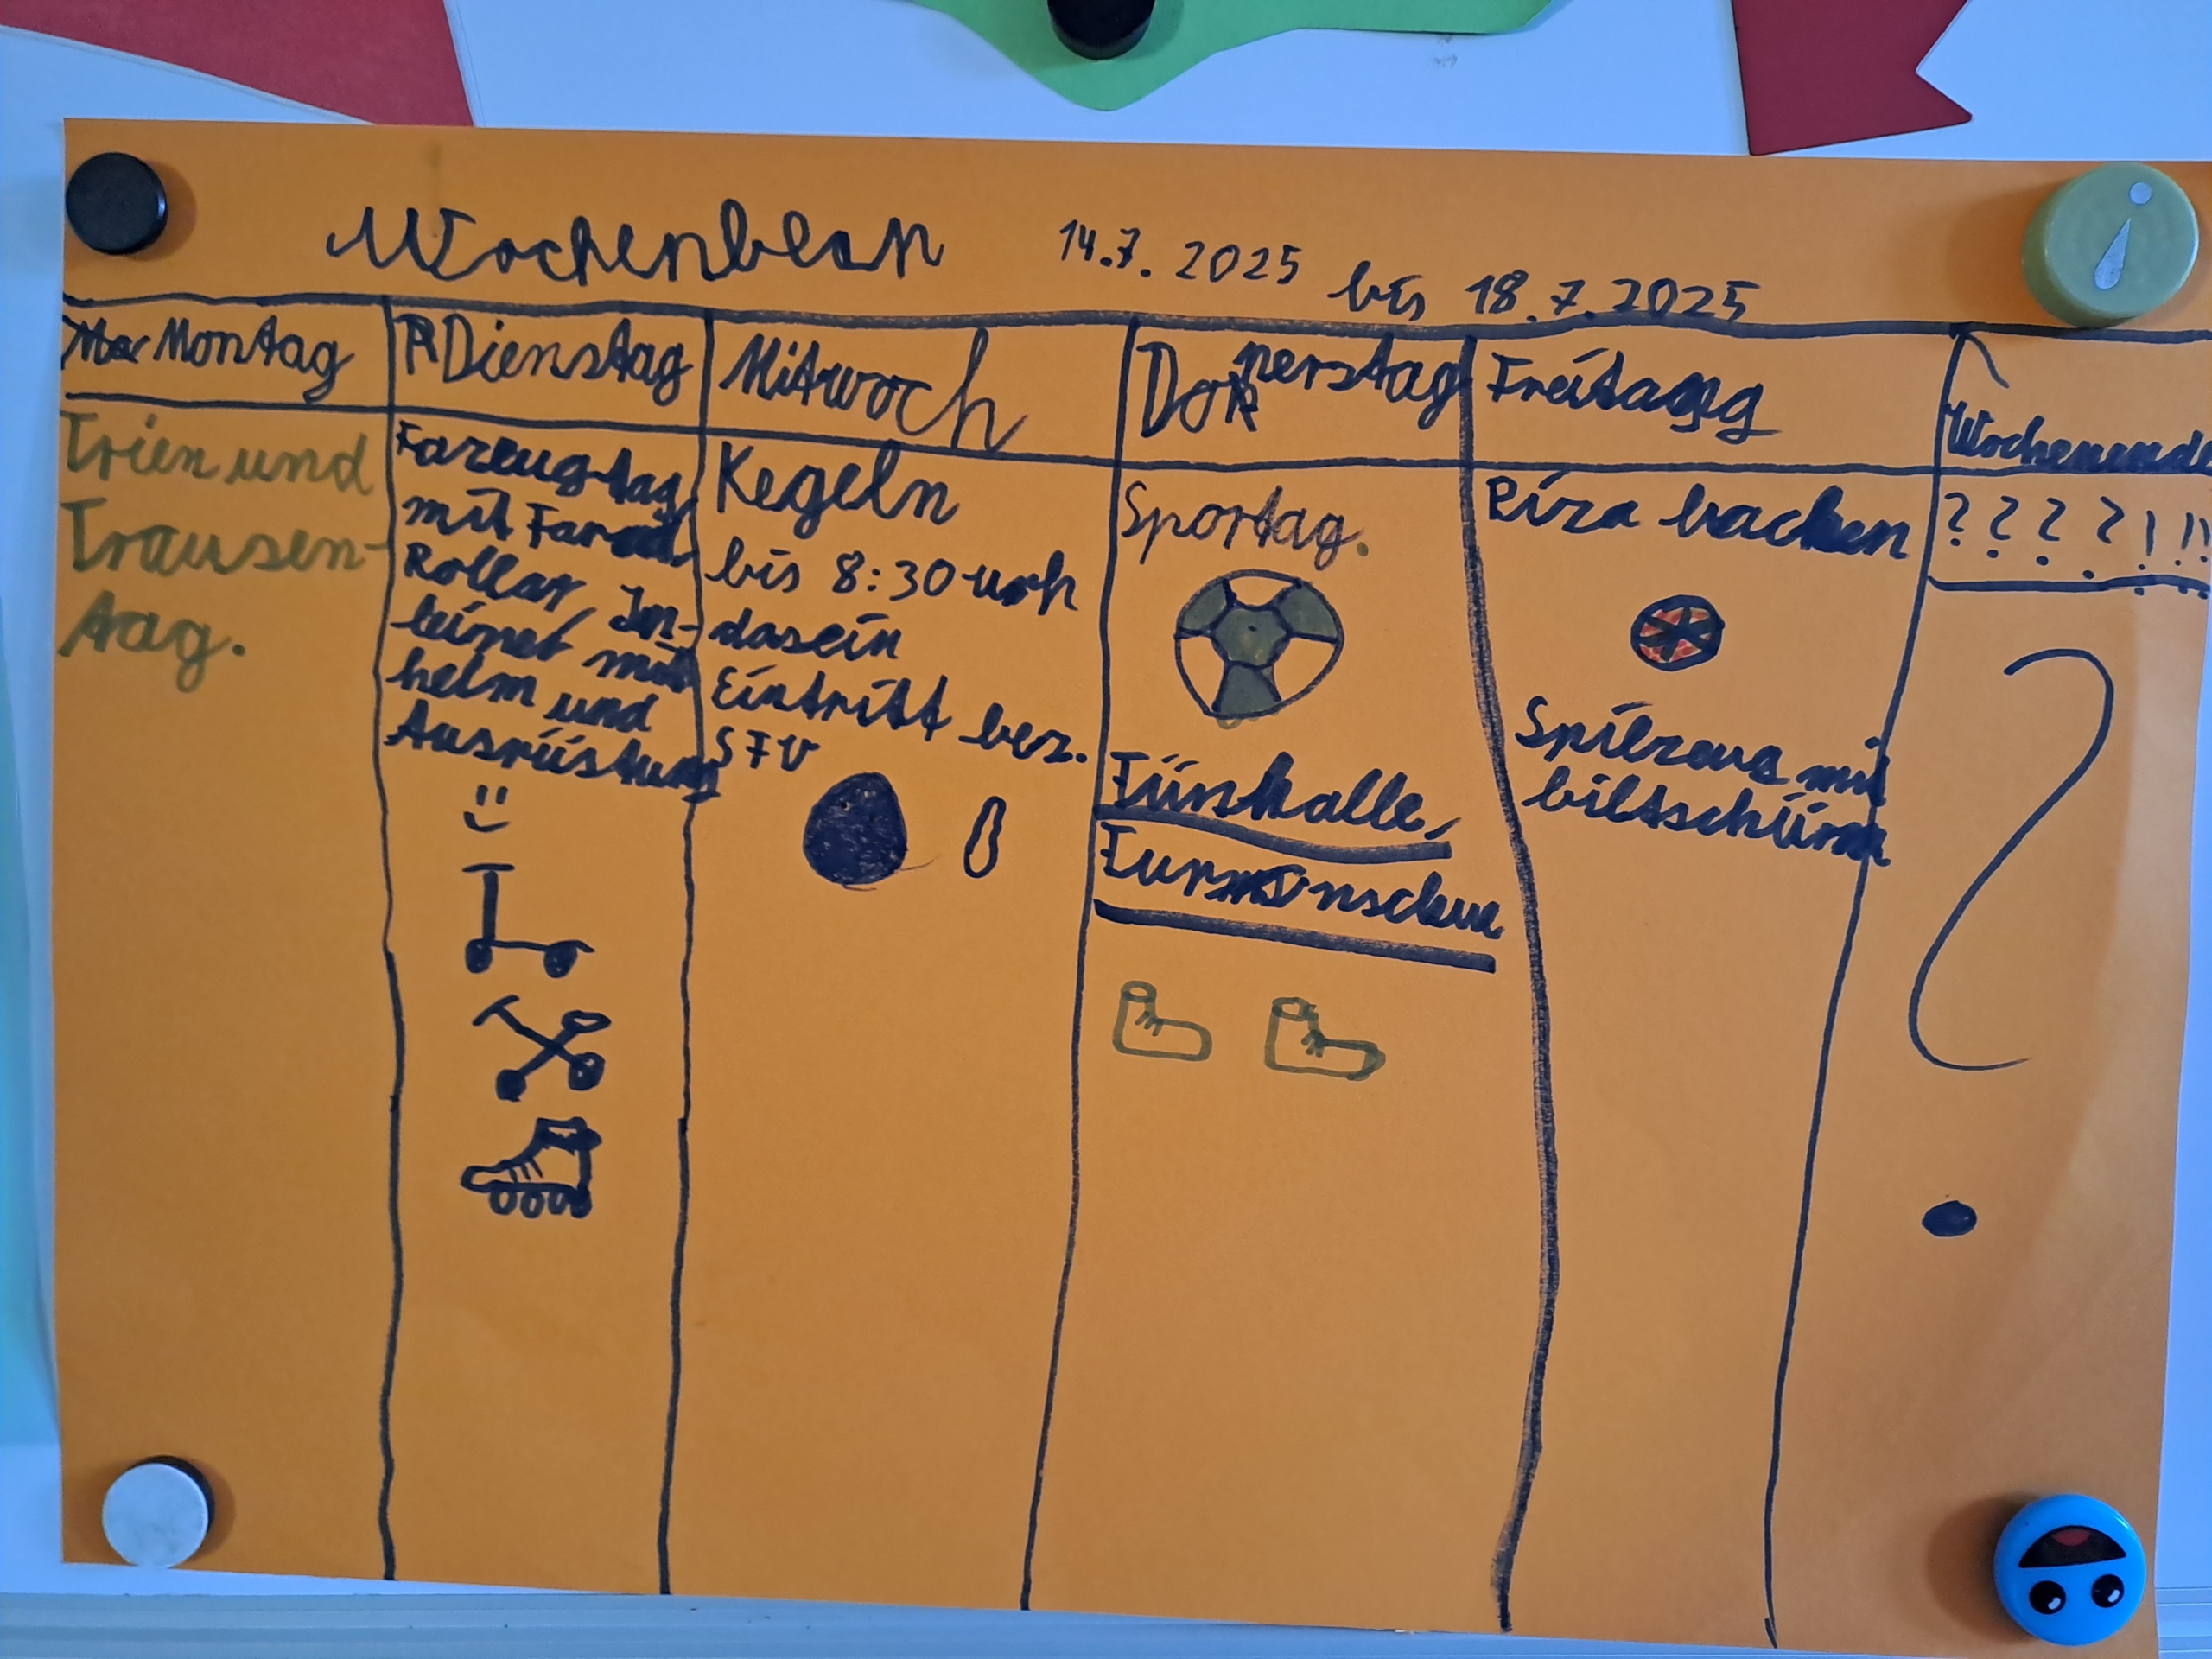 Wochenblan 14.7.2025 bis 18.7.2025
Montag
Trien und
Trausen-
tag.
Dienstag
Farzeugtag
mit Farad
Roller, In-
leiner mit
helm und
Ausrüstung
Mitwoch
Kegeln
bis 8:30 urh
dasein
Eintritt bez.
SFV
Donnerstag
Sportag.
Türnhalle,
Turnschue
Freitag
Piza backen
Spilzeug mit
biltschürm
Wochenende
? ? ? ? ! ! !
?